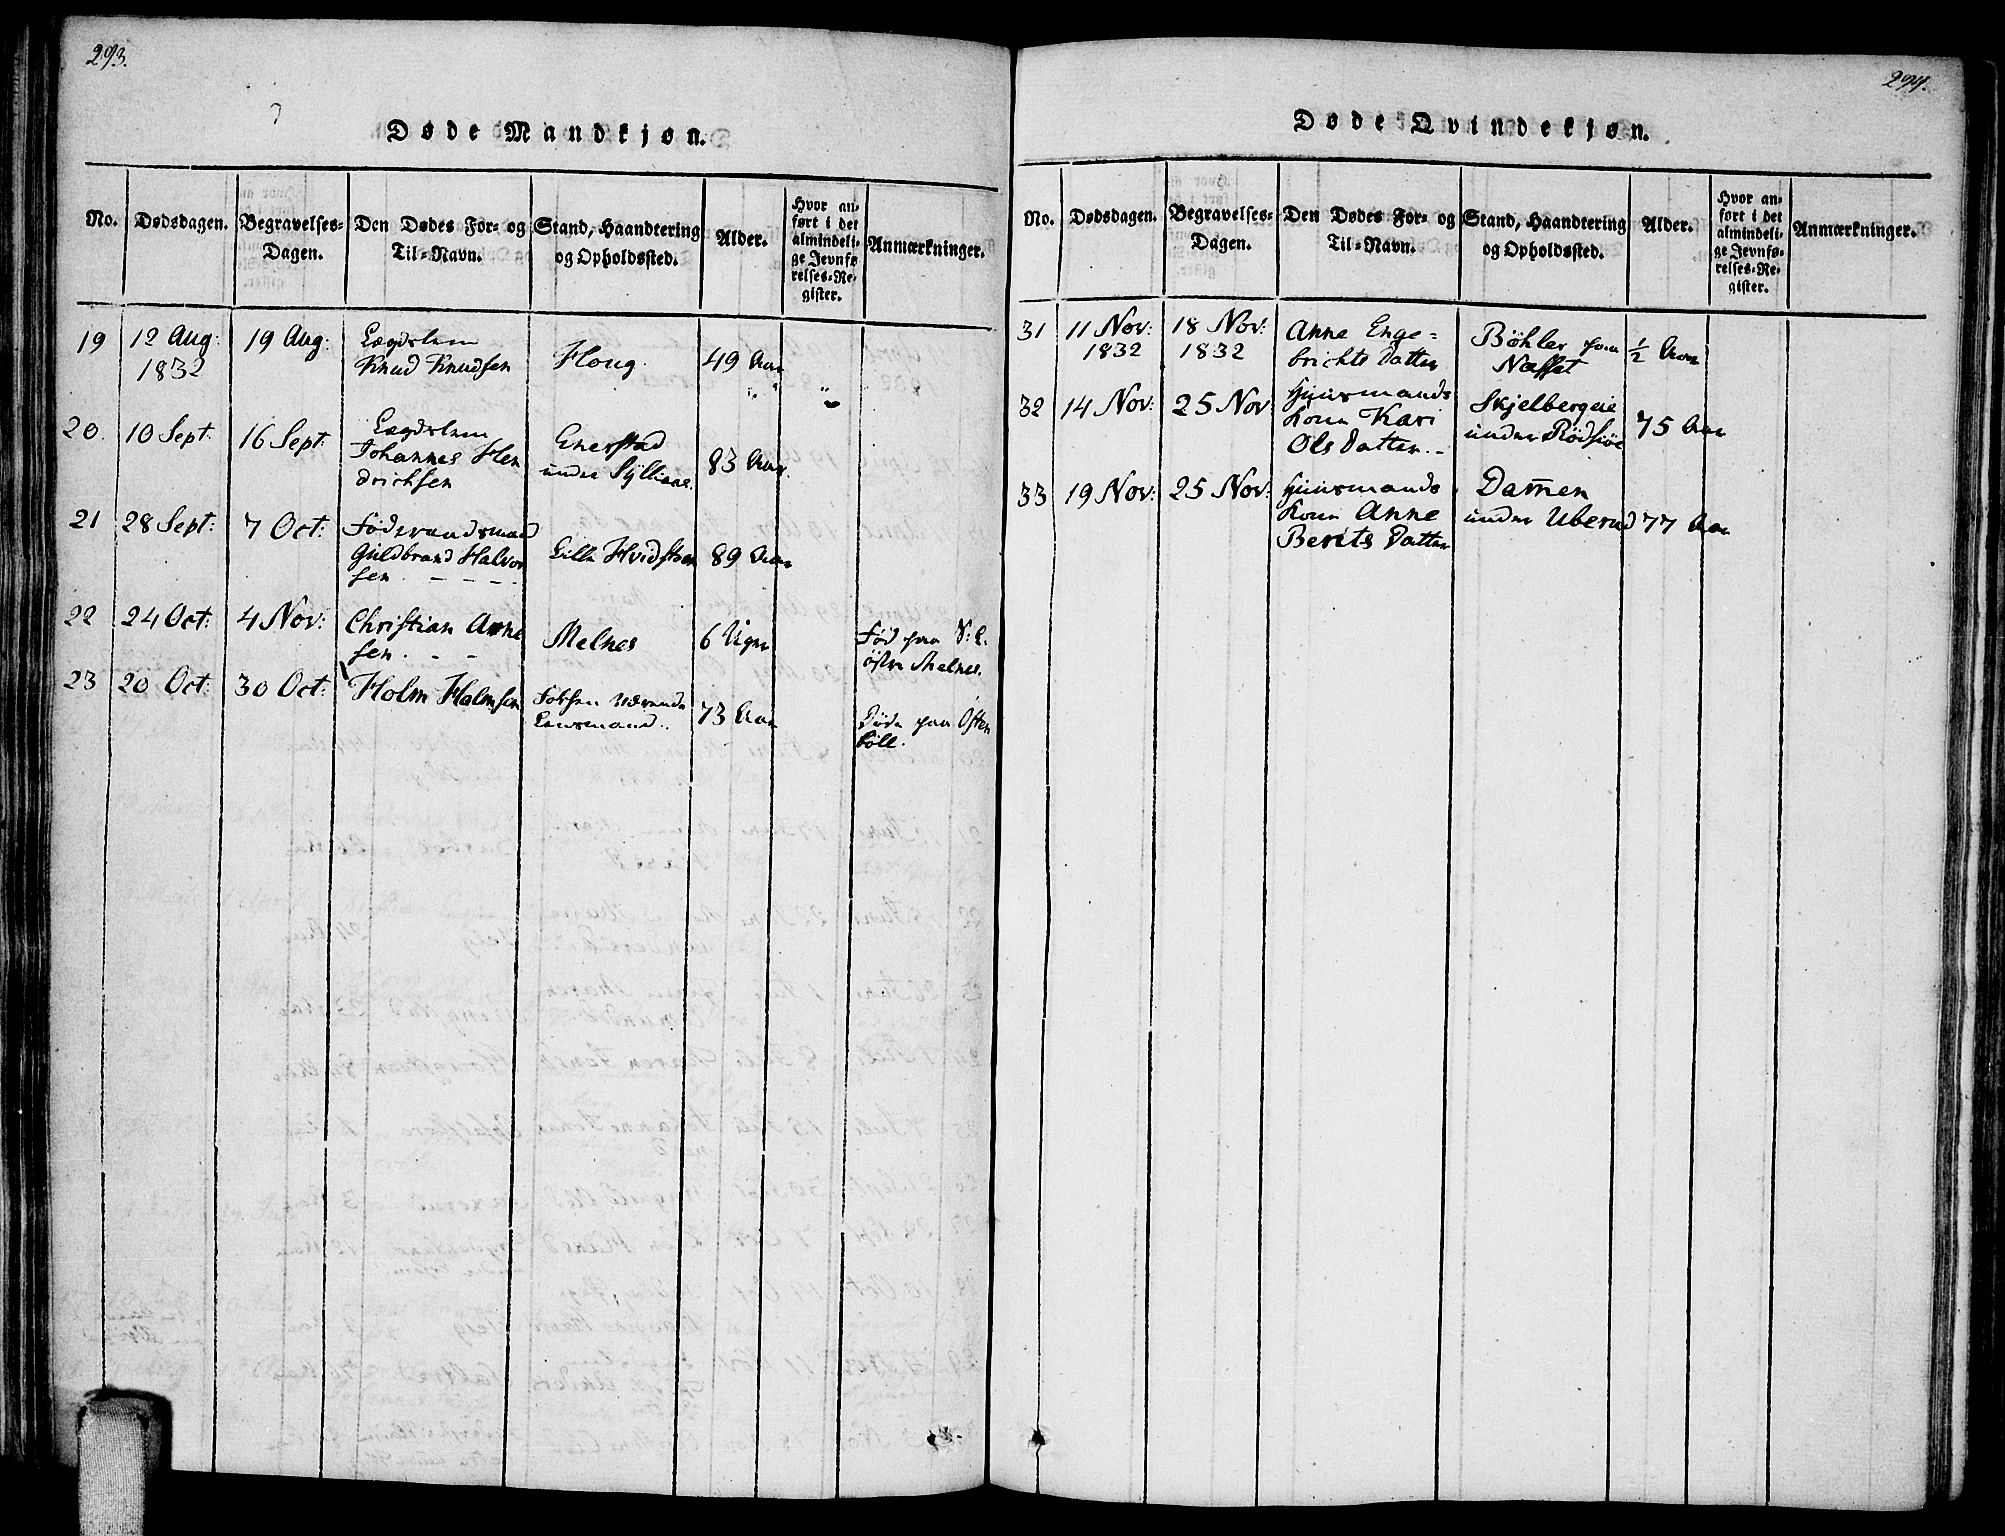 293.
Døde Mandkjøn.
No.
Dødsdagen.
Begravelses-
Dagen.
Den Dødes For- og
Til-Navn.
Stand, Haandtering
og Opholdssted.
Alder.
Hvor an-
ført i det
almindeli-
ge Jevnfø-
relses-Re-
gister.
Anmærkninger.
19 12 Aug: 1832 19 Aug: Lægdslem
Knud Knudsen
Houg. 49 Aar
20. 10 Sept: 16 Sept: Lægdslem
Johannes Hen
drichsen
Enerstad
under Sylliaae. 83 Aar.
21 28 Sept: 7 Oct: Föderaadsmand
Guldbrand Halvor
sen. - - - -
Lille Hvidsteen 89 Aar
22 24 Oct: 4 Nov: Christian Arne
sen. - -
Melnes 6 Uger
Fød paa
östre Melnes.
23 20 Oct: 30 Oct: Holm Holmsen
Forhen værende
Lensmand.. 73 Aar
Døde paa Östen
böll.
294.
Døde Qvindekjøn.
No.
Dødsdagen.
Begravelses-
Dagen.
Den Dødes For- og
Til-Navn.
Stand, Haandtering
og Opholdssted.
Alder.
Hvor an-
ført i det
almindeli-
ge Jevnfø-
relses-Re-
gister.
Anmærkninger.
31 11 Nov: 1832 18 Nov: 1832 Anne Enge-
brichts Datter
Böhler paa
Næsset ½ Aar
32 14 Nov: 25 Nov: Huusmands
Kone Kari
Ols Datter. -
Skjelbergeie
under Rödsiöe 75 Aar
33 19 Nov: 25 Nov: Huusmands
Kone Anne
Berets Datter
Dam̄en
under Uberud 77 Aar